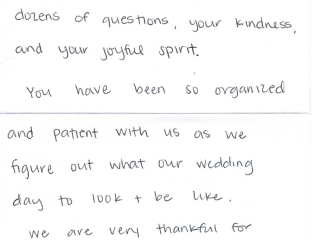 dozens of questions, your kindness,
and your joyful spirit.
You have been so organized
and patient with us as we
figure out what our wedding
day to look + be like.
we are very thankful for